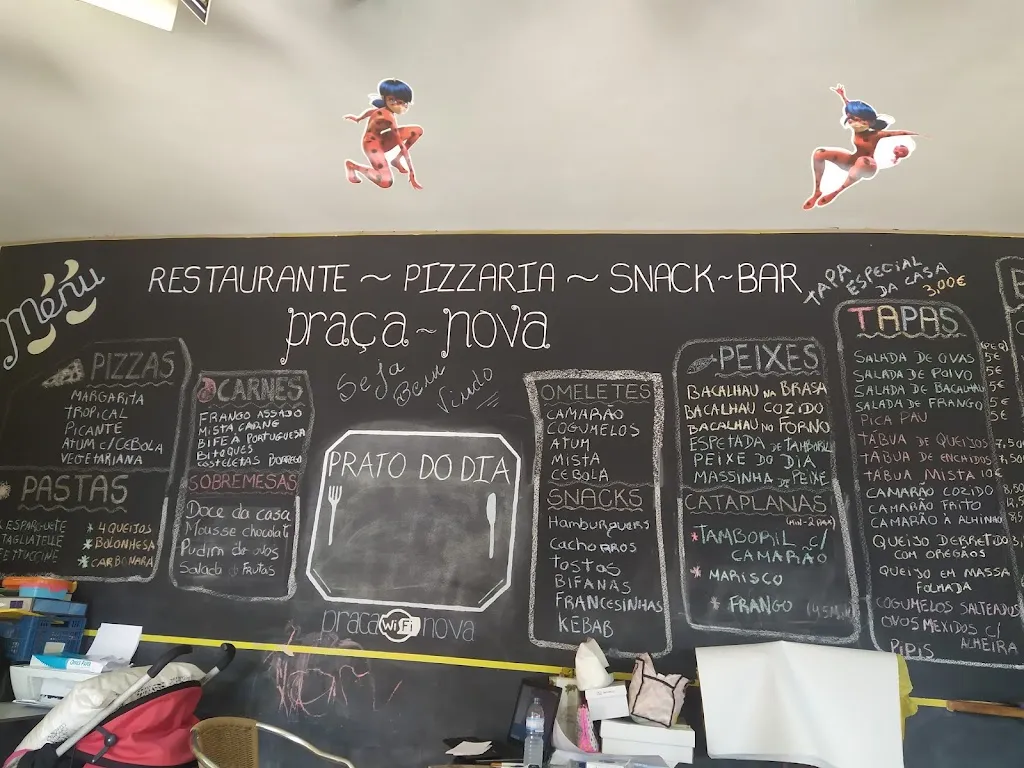 Menu
RESTAURANTE ~ PIZZARIA ~ SNACK-BAR
praça ~ nova
Seja Bem Vindo
PIZZAS
MARGARITA
TROPICAL
PICANTE
ATUM C/CEBOLA
VEGETARIANA
PASTAS
ESPARGUETE
TAGLIATELLE
FETTUCCINE
* 4 QUEIJOS
* BOLONHESA
* CARBONARA
CARNES
FRANGO ASSADO
MISTA CARNE
BIFE À PORTUGUESA
BITOQUES
COSTELETAS BORREGO
SOBREMESAS
Doce da casa
Mousse chocolate
Pudim de ovos
Salada de Frutas
PRATO DO DIA
praça WiFi nova
OMELETES
CAMARÃO
COGUMELOS
ATUM
MISTA
CEBOLA
SNACKS
Hamburguers
Cachorros
Tostas
BIFANAS
FRANCESINHAS
KEBAB
PEIXES
BACALHAU NA BRASA
BACALHAU COZIDO
BACALHAU NO FORNO
ESPETADA DE TAMBORIL
PEIXE DO DIA
MASSINHA DE PEIXE
CATAPLANAS
(MIN-2 PAX)
* TAMBORIL C/
CAMARÃO
* MARISCO
* FRANGO
TAPA ESPECIAL
DA CASA
3,00€
TAPAS
SALADA DE OVAS 5€
SALADA DE POLVO 5€
SALADA DE BACALHAU 5€
SALADA DE FRANGO 5€
PICA PAU
TÁBUA DE QUEIJOS 7,50
TÁBUA DE ENCHIDOS 7,50
TÁBUA MISTA 10€
CAMARÃO COZIDO
CAMARÃO FRITO
CAMARÃO À ALHINHO
QUEIJO DERRETIDO
COM OREGÃOS
QUEIJO EM MASSA
FOLHADA
COGUMELOS SALTEADOS
OVOS MEXIDOS C/
ALHEIRA
PIPIS